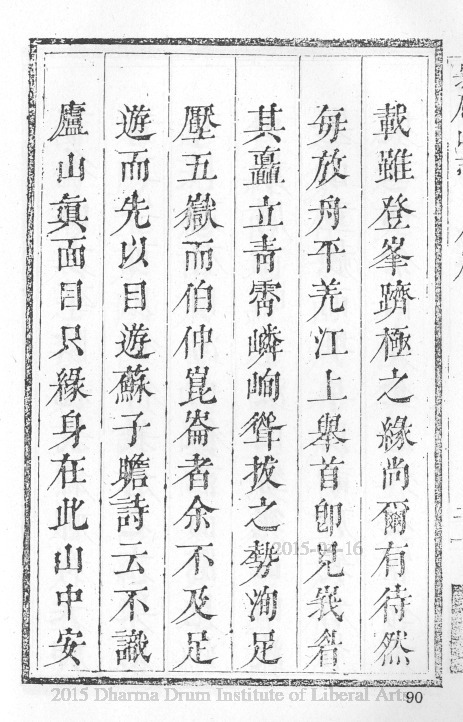 載雖登峯躋極之緣尚爾有待然
每放舟平羌江上舉首卽見峩眉
其矗立青霄嶙峋聳拔之勢洵足
壓五嶽而伯仲崑崙者余不及足
遊而先以目遊蘇子瞻詩云不識
廬山眞面目只緣身在此山中安
2015 Dharma Drum Institute of Liberal Arts
90